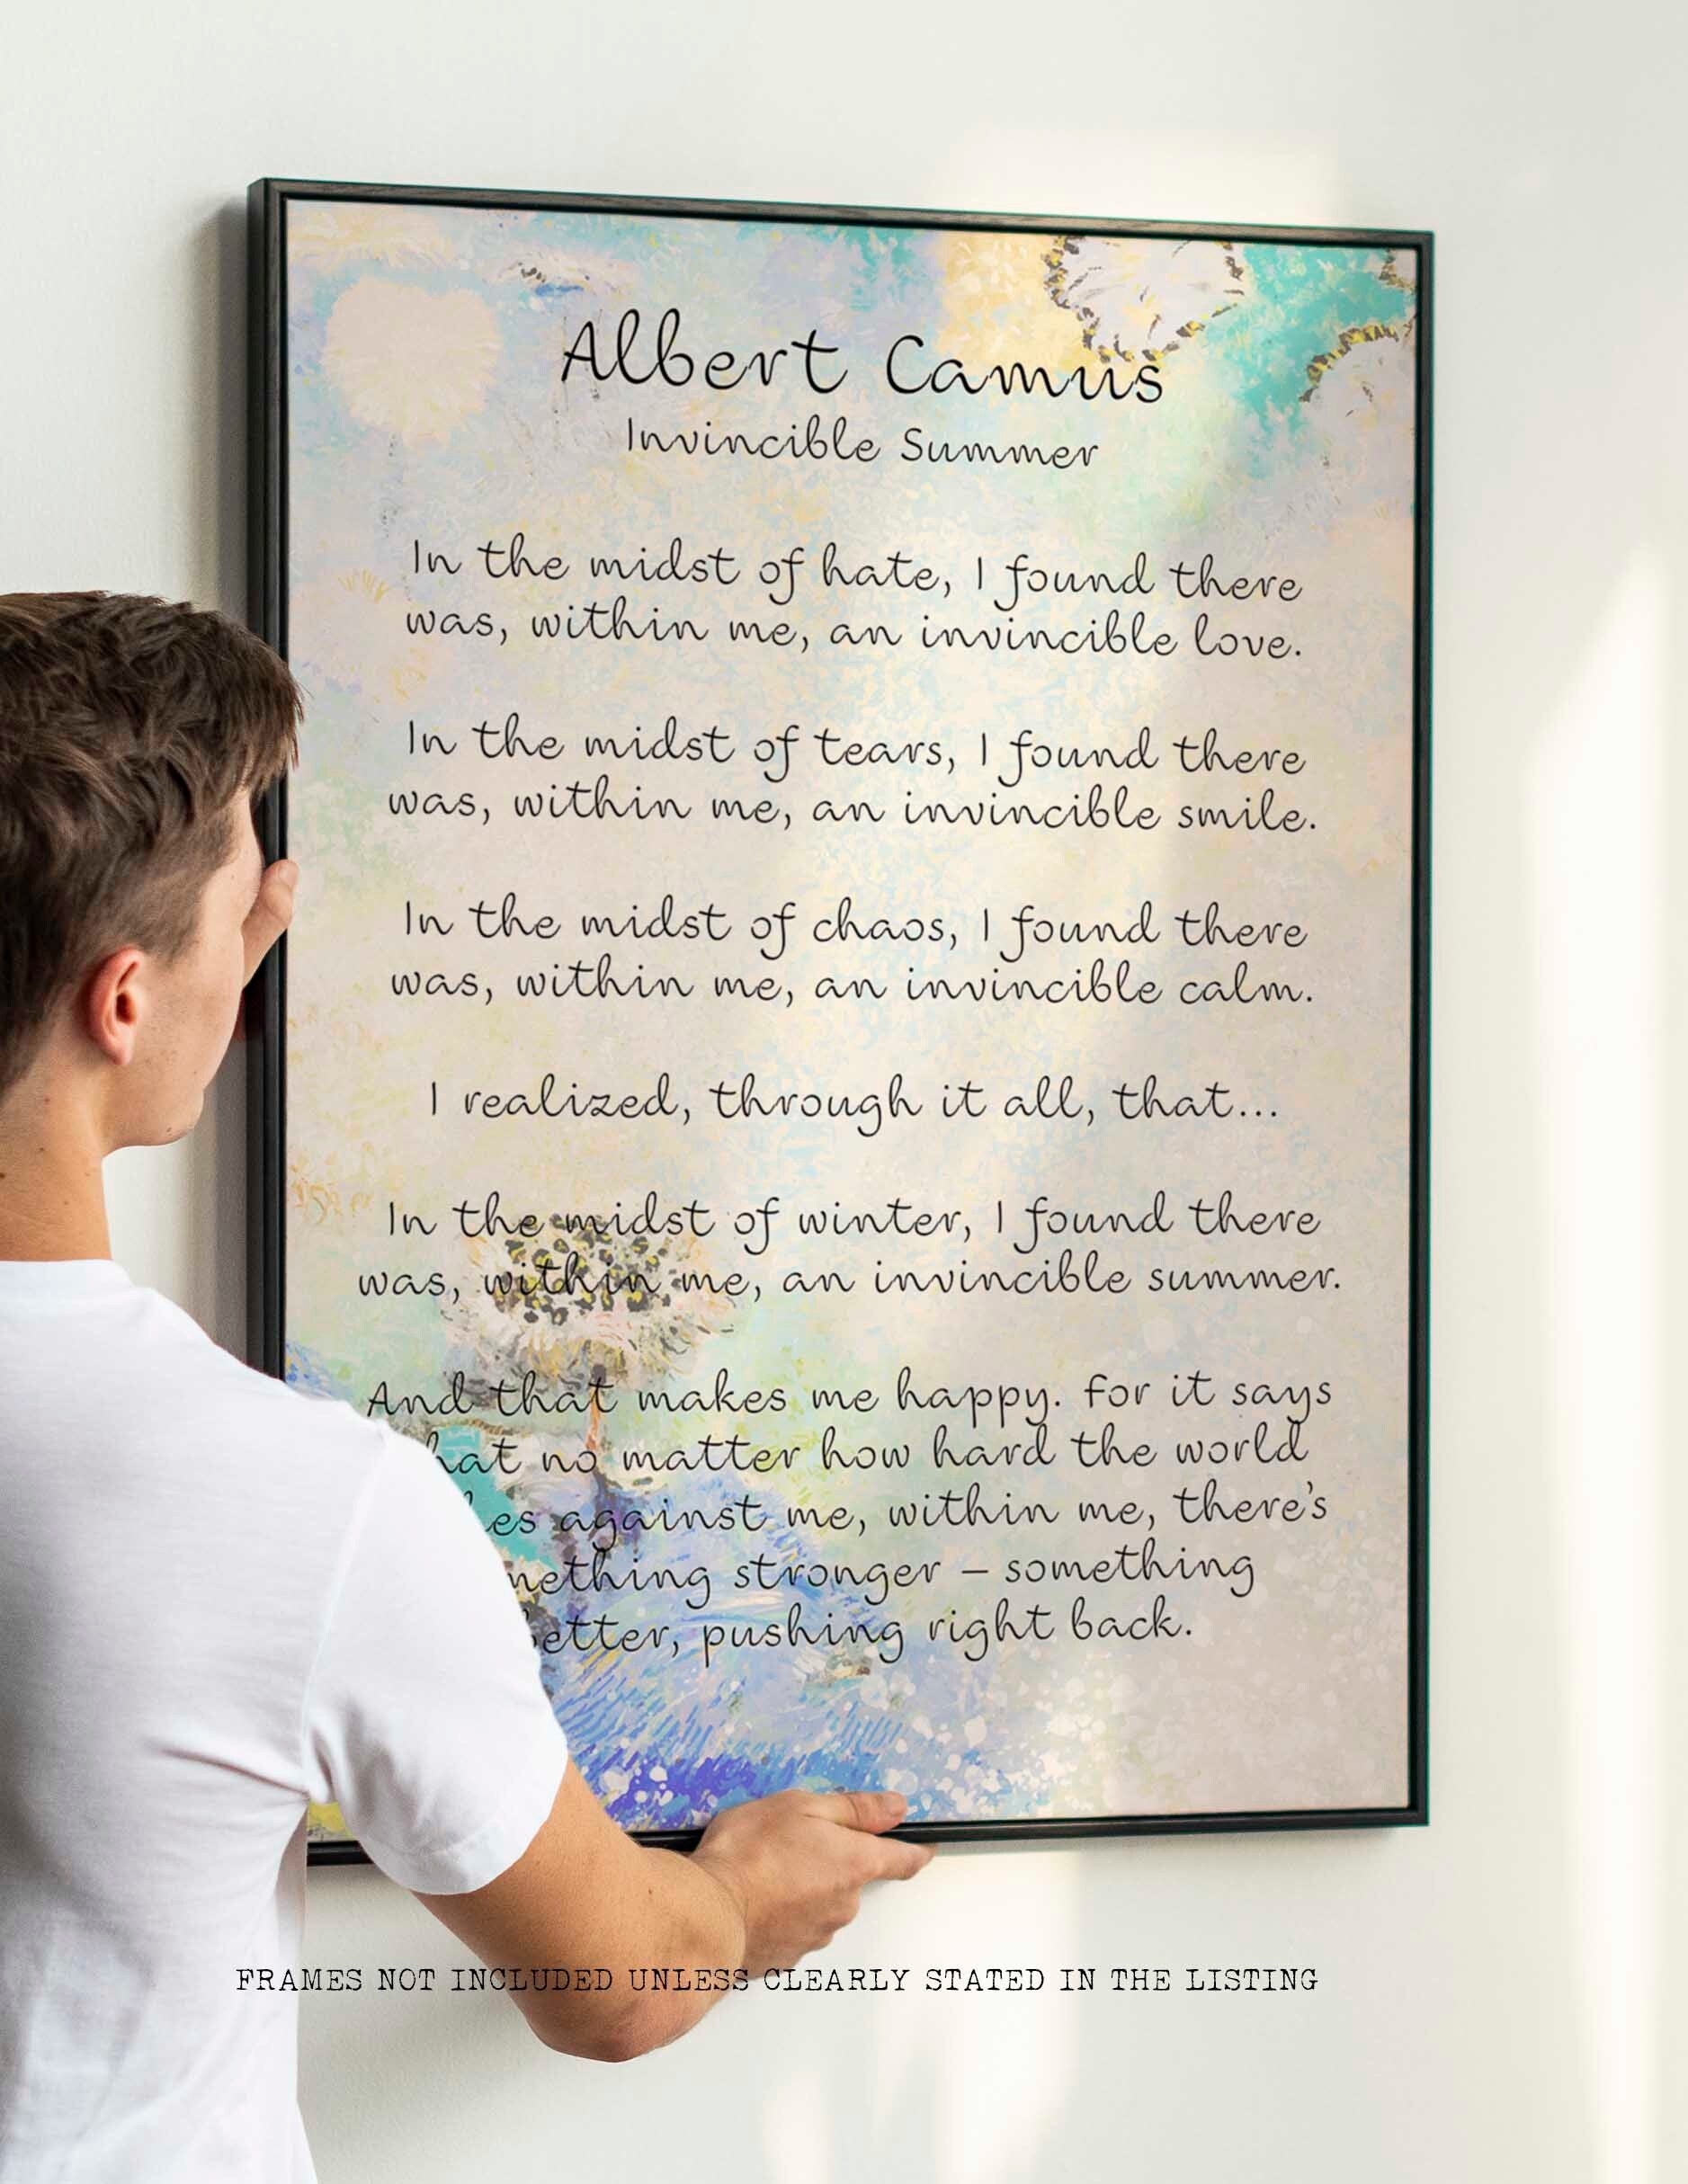 Albert Camus
Invincible Summer
In the midst of hate, I found there
was, within me, an invincible love.
In the midst of tears, I found there
was, within me, an invincible smile.
In the midst of chaos, I found there
was, within me, an invincible calm.
I realized, through it all, that...
In the midst of winter, I found there
was, within me, an invincible summer.
And that makes me happy. For it says
no matter how hard the world
against me, within me, there's
stronger – something
better, pushing right back.
FRAMES NOT INCLUDED UNLESS CLEARLY STATED IN THE LISTING